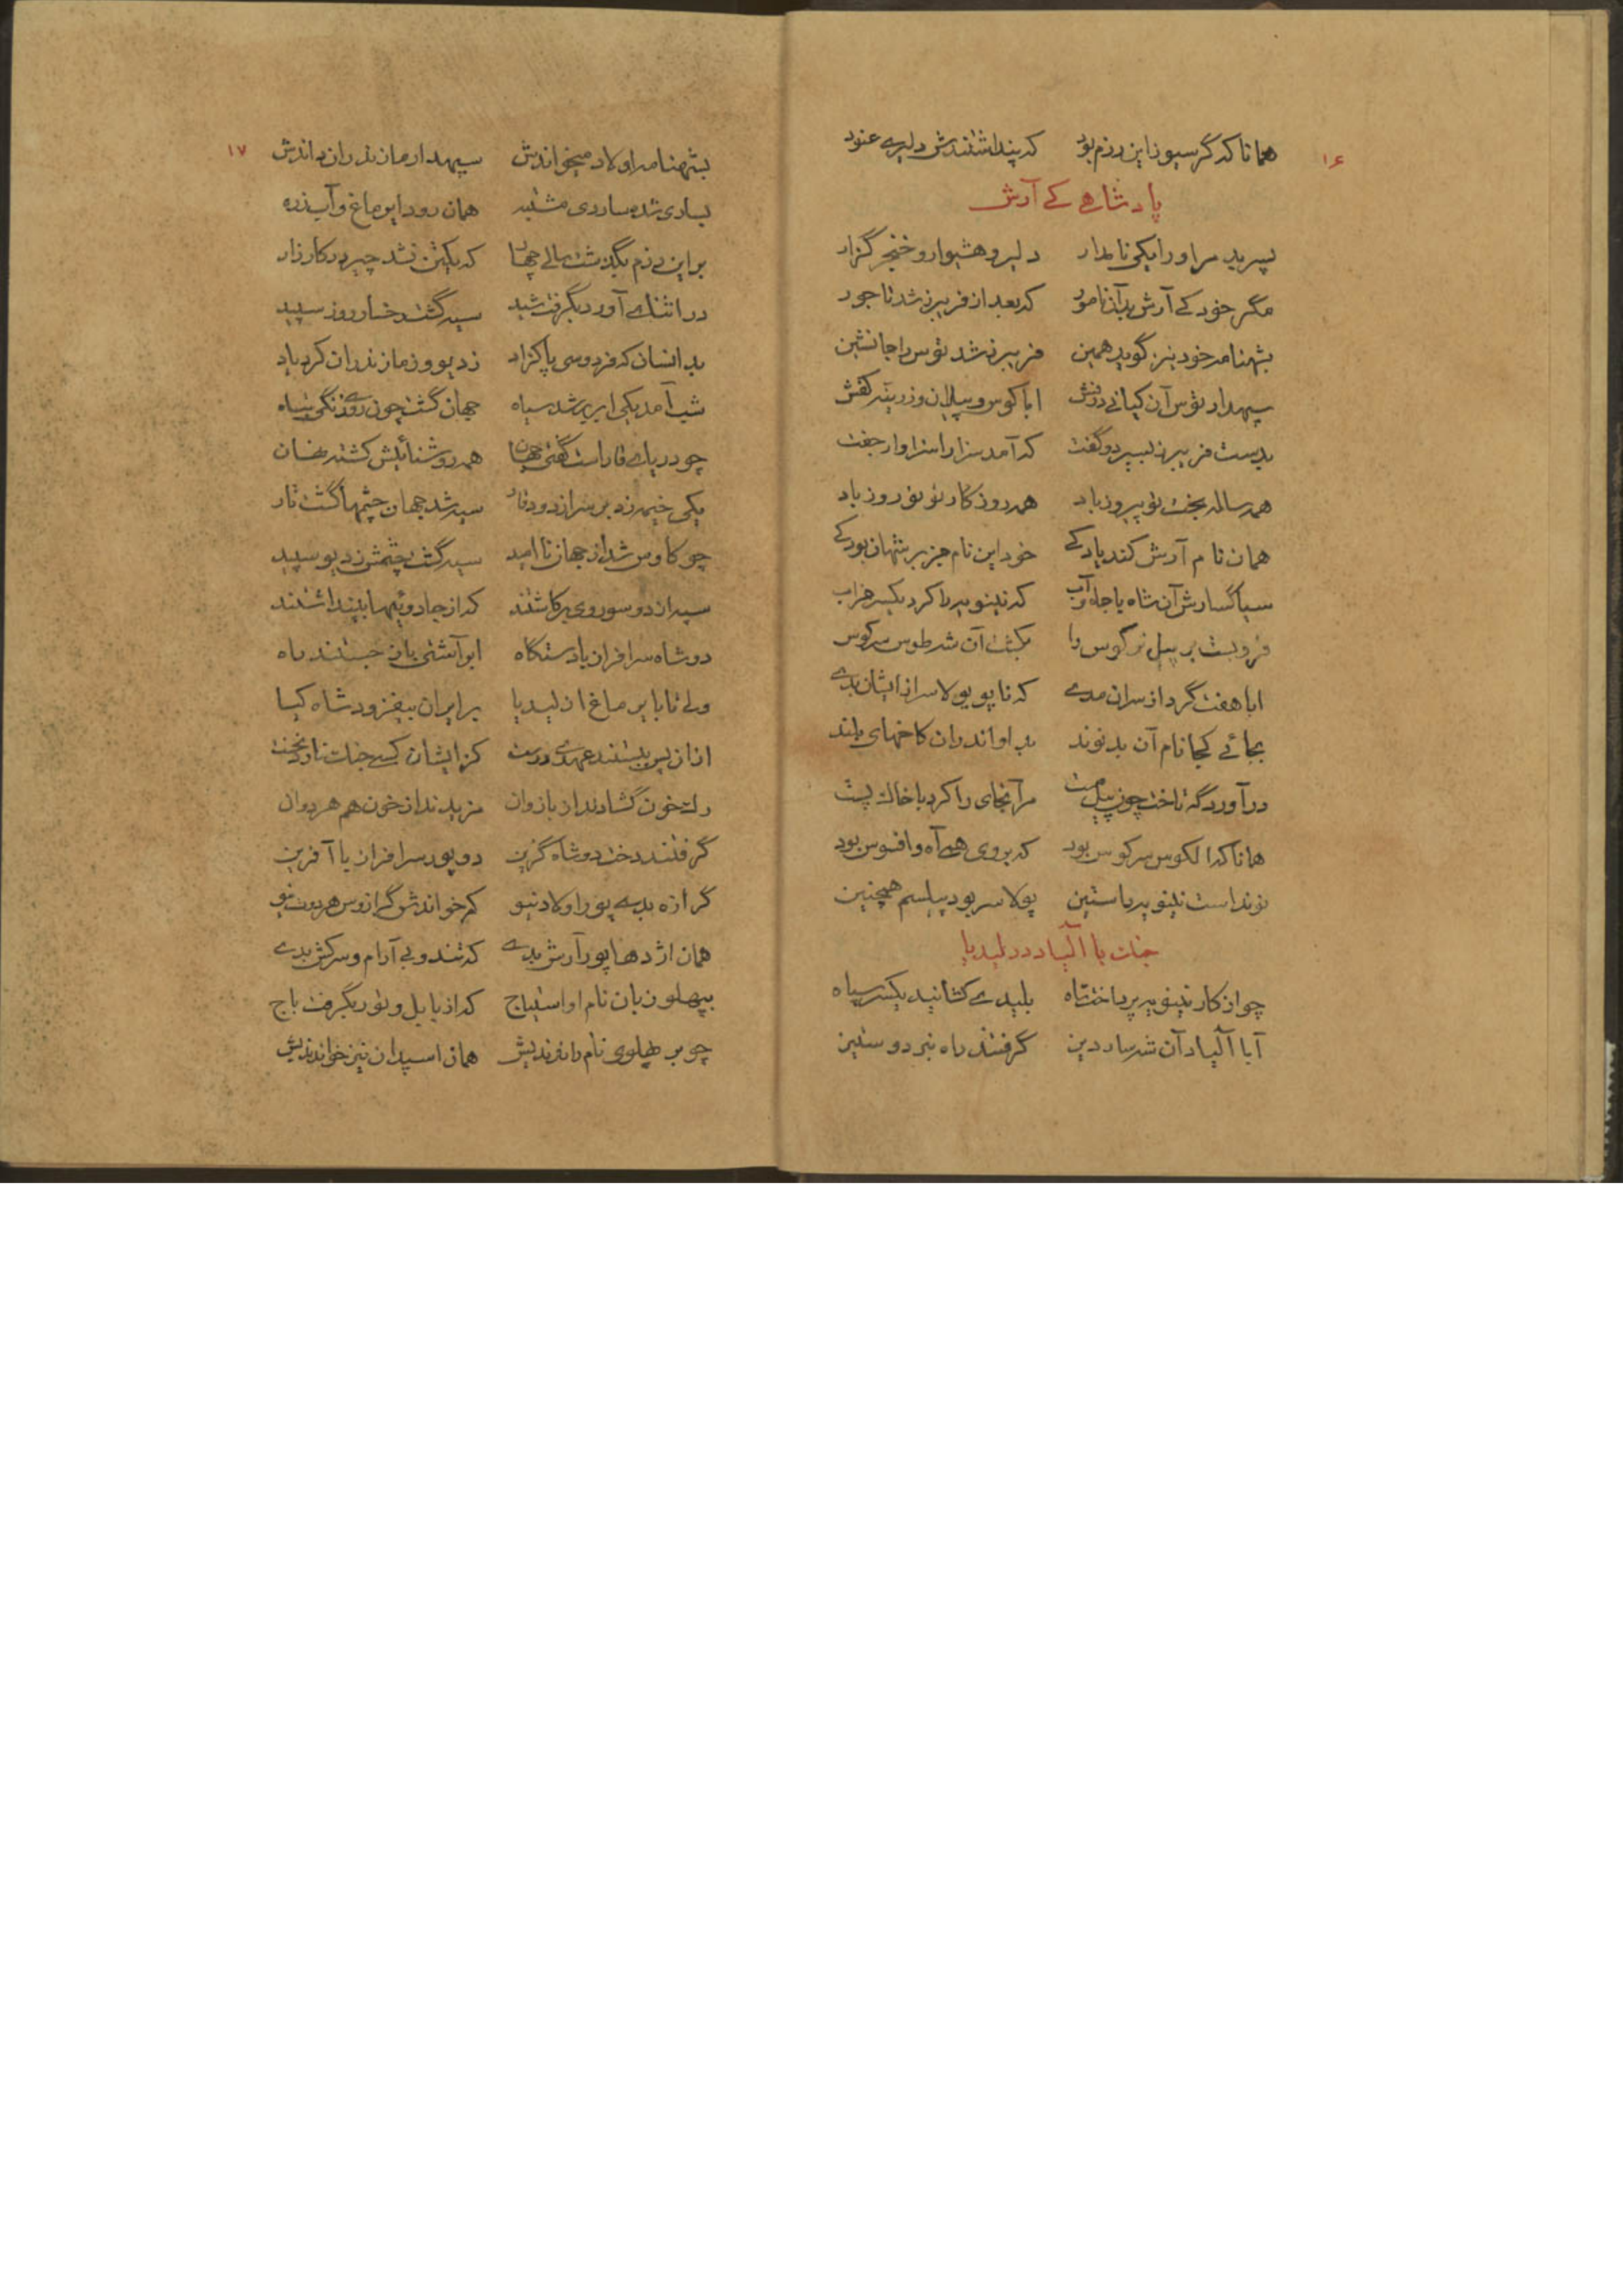 ۱۶
همانا که گرسیوز این رزم بود که پنداشتندش دلیری عنود
پادشاهی کی آرش
پسر بد مر او را یکی نامدار دلیر و هشیوار و خنجر گزار
مگر خود کی آرش بد آن نامور که بعد از فریبرز شد تاجور
بشهنامه خود نیز گوید همین فریبرز شد توس را جانشین
سپهدار توس آن کیانی درفش ابا کوس و پیلان و زرینه کفش
بدست فریبرز بسپرد و گفت که آمد سزا را سزاوار جفت
همه ساله بخت تو پیروز باد همه روزگار تو نوروز باد
همان نام آرش کند یاد کی خود این نام جز بر شهان بود کی
سیاگسارش آن شاه با جاه و آب که نینویه را کرد یکسر خراب
فرو بست بر پیل نر کوس را بکشت آن شه طوس سرکوس
ابا هفت گرد از سران مدی که نابو پولاسر از ایشان بدی
بجائی کجا نام آن بد نوند بد او اندران کاخهای بلند
درآوردگه تاخت چون پیل مست مر آنجای را کرد با خاک پست
همانا که الکوس سرکوس بود که بر وی همی آه و افسوس بود
نوند است نینویه راستین پولاسر بود پیلسم همچنین
جنک با آلیاد در لیدیا
چو از کار نینویه پرداخت شاه بلیدی کشانید یکسر سپاه
ابا آلیاد آن شه ساردین گرفتند راه نبرد و ستیز
۱۷
بشهنامه اولاد میخواندش سپهدار مازندران داندش
بساری شده ساردی مشتبه همان رود ایرماغ و آب زره
بر این رزم بگذشت سالی چهار که یکتن نشد چیره در کارزار
در اثنای آورد بگرفت شید سیه گشت رخسار روز سپید
بد انسان که فردوسی پاکزاد ز دیو و ز مازندران کرد یاد
شب آمد یکی ابر بر شد سیاه جهان گشت چون روی زنگی سیاه
چو دریای قار است گفتی جهان همه روشنائیش گشته نهان
یکی خیمه زد بر سر از دود قار سیه شد جهان چشمها گشت تار
چو کاوس شد از جهان ناامید سیه گشت چشمش ز دیو سپید
سپه از دو سو روی برکاشتند که از جادوئیها بپنداشتند
دو شاه سرافراز با دستگاه ابر آشتی باز جستند راه
ولی تا با یرماغ از لیدیا بر ایران بیفزود شاه کیا
از آن پس ببستند عهدی درست کز ایشان کسی جنک ناورد نخست
رک خون گشادند از بازوان مزیدند از خون هم هر دوان
گرفتند دخت دو شاه گزین دو پور سرافراز با آفرین
گرازه بدی پور اولاد نیو
همان اژدها پور آرش بدی که تند و بی آرام و سرکش بدی
بپهلو زبان نام او استیاج که از بابل و نور بگرفت باج
چو بر پهلوی نام راندندیش همان اسپدان نیز خواندندیش